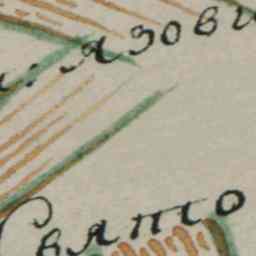 : язови
Свято